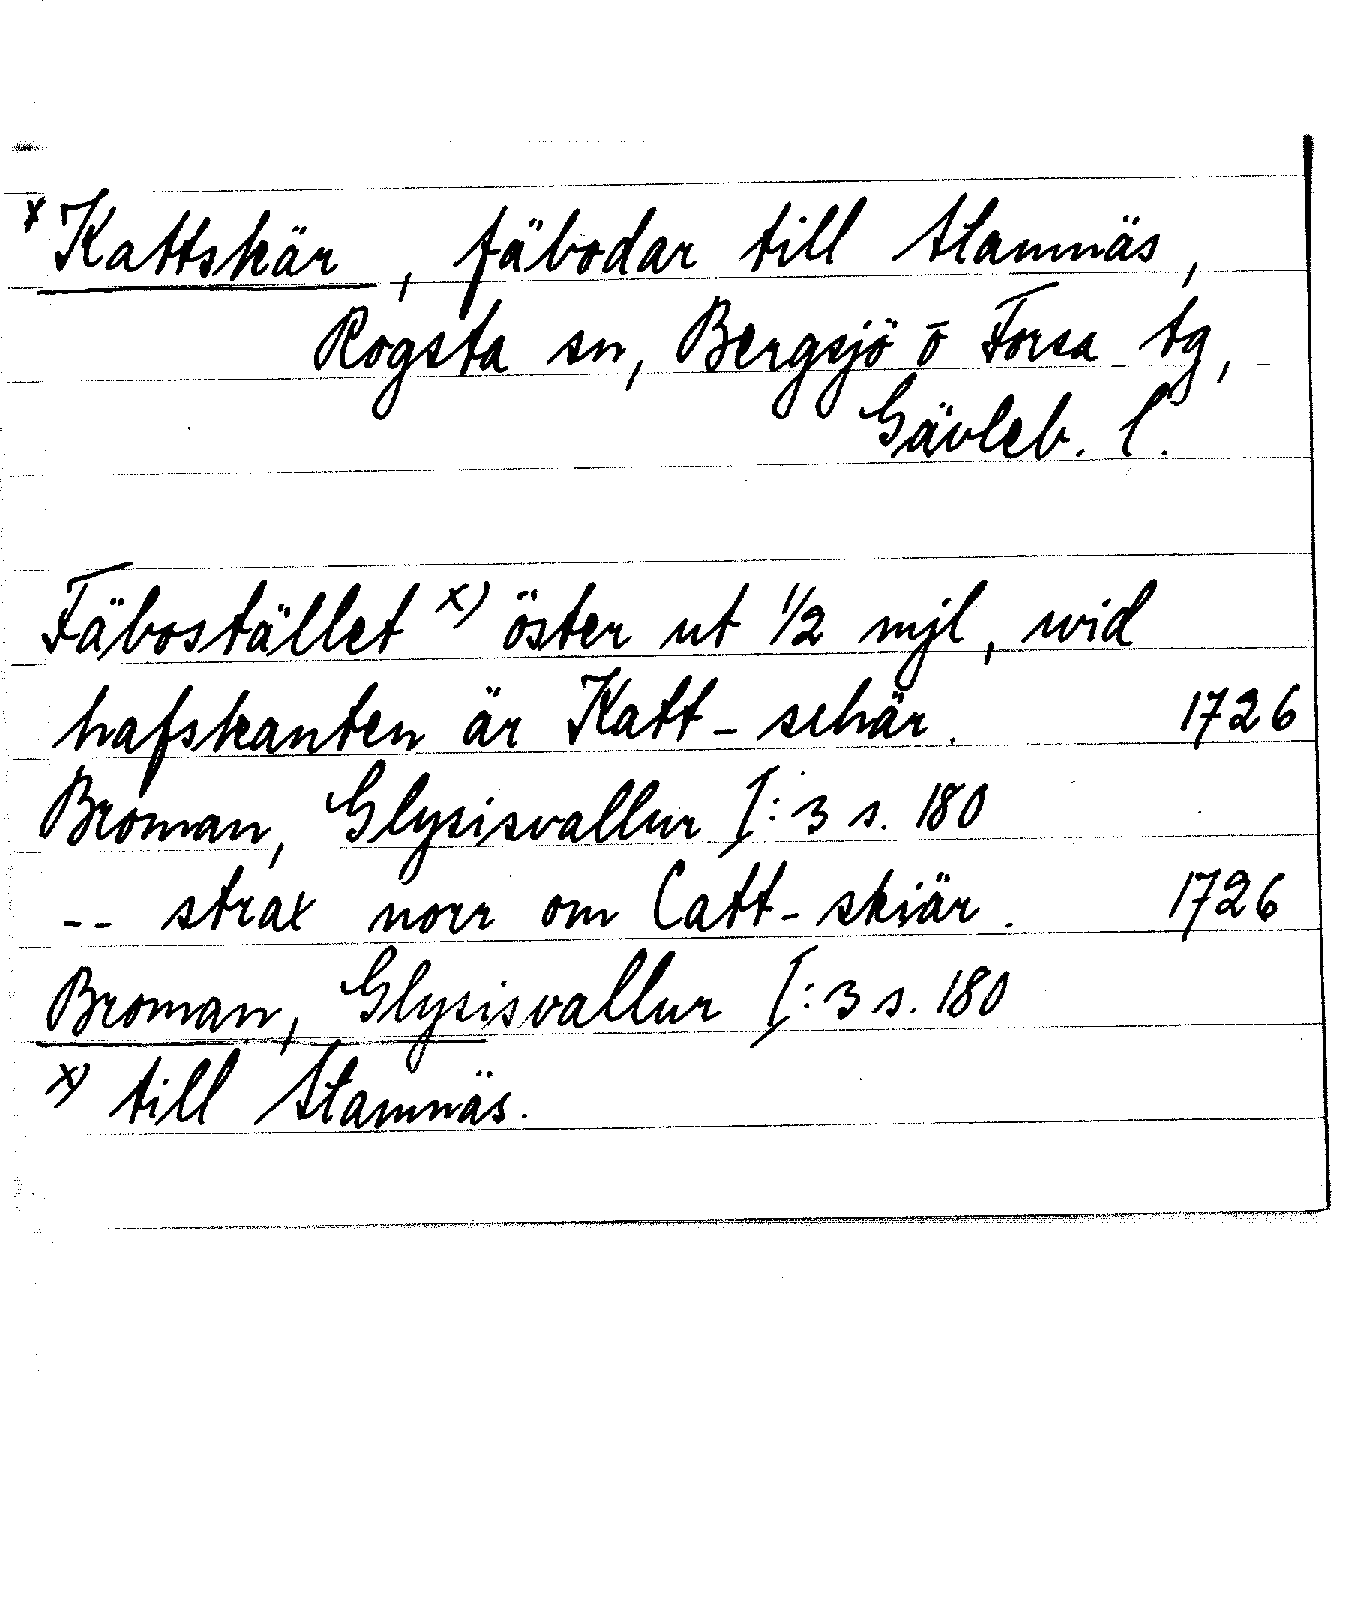 * Kattskär, fäbodar till Stamnäs,
Rogsta sn, Bergsjö o Forsa tg,
Gävleb. l.
Fäbostället x) öster ut 1/2 mjl, wid
hafskanten är Katt-schär. 1726
Broman, Glysisvallur I:3 s. 180
-- strax norr om Catt-skiär. 1726
Broman, Glysisvallur I:3 s. 180
x) till Stamnäs.